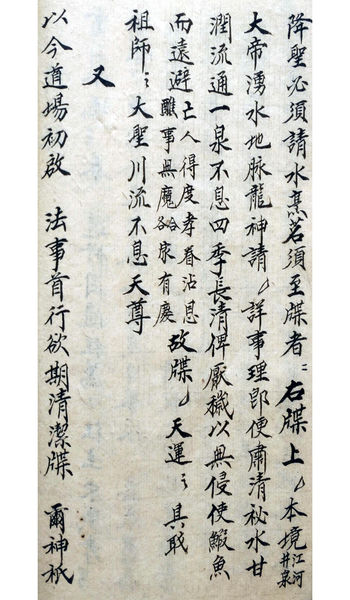 降聖必須請水烹茗須至牒者〻右牒上　本境江河井泉
大帝湧水地脉龍神請　詳事理即便肅清祕水甘
潤流通一泉不息四季長清俾厭穢以無侵使鰕魚
而遠避亡人得度孝眷沾恩醮事無魔各家有慶故牒　天運〻具戢
祖師〻大聖川流不息天尊
又
以今道場初啟　法事首行欲期清潔牒　爾神祇